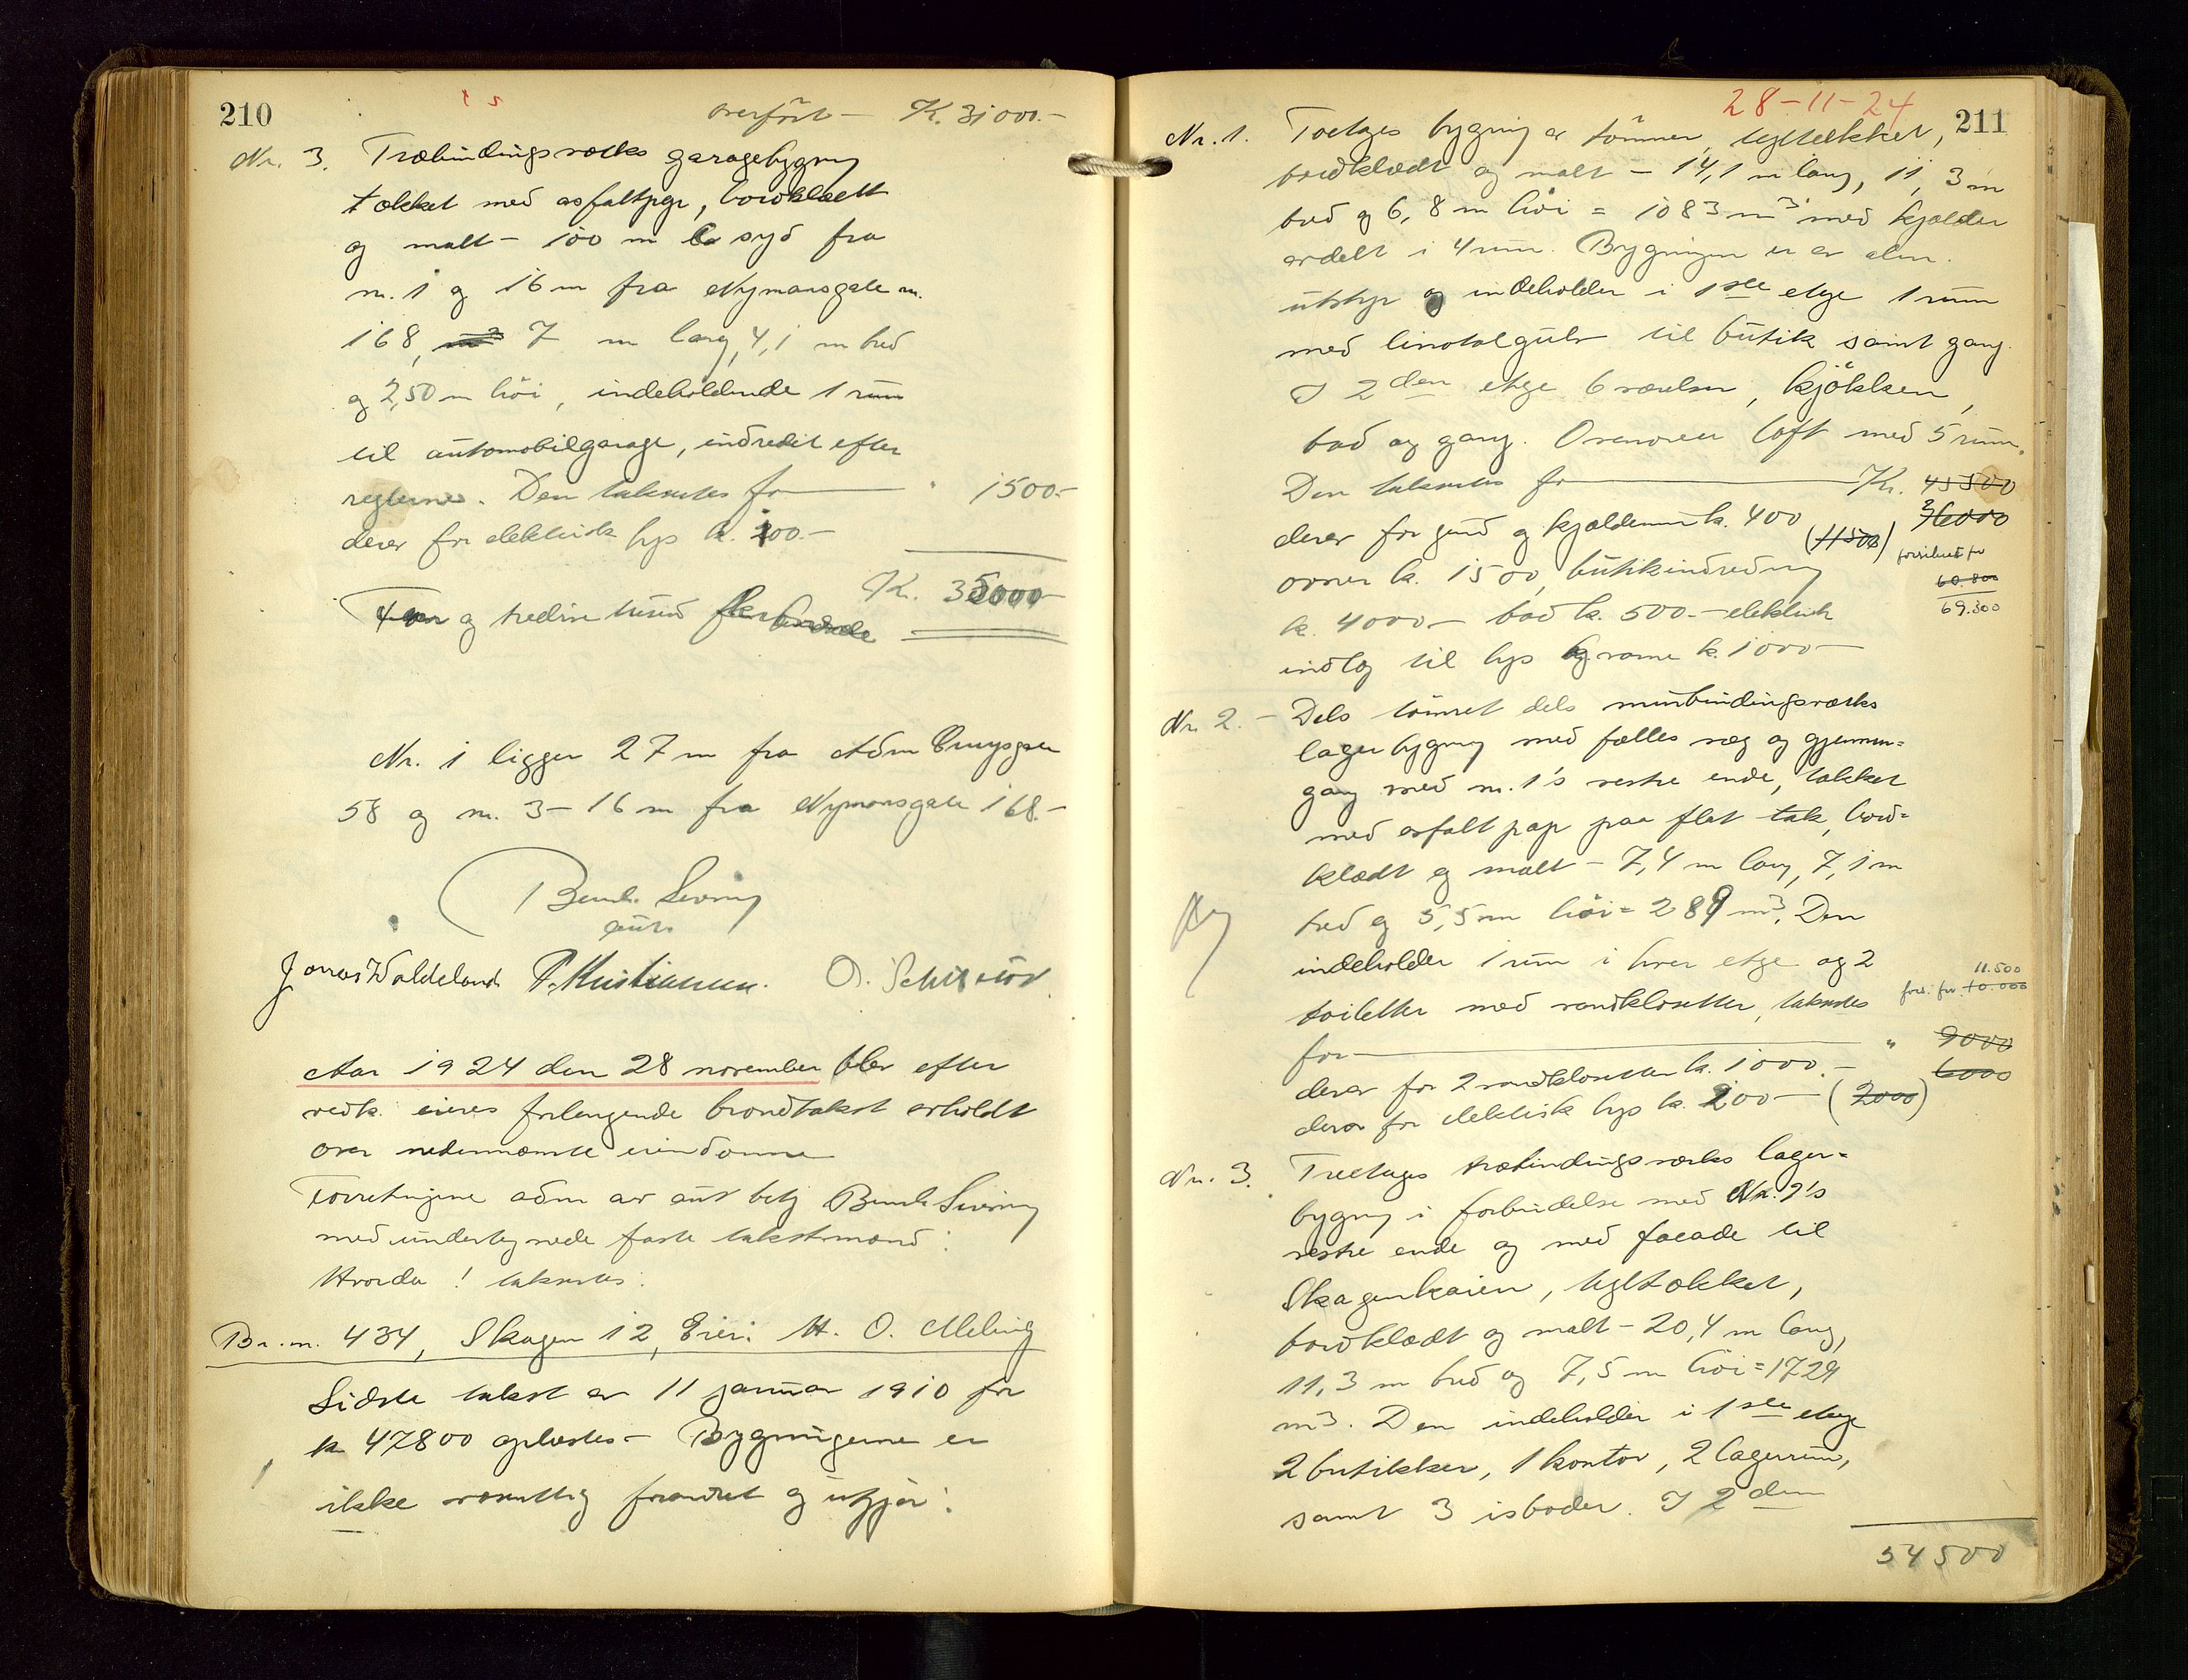 210
overført — K. 31000.-
Nr. 3. Træbindingsværks garagebygning
tækket med asfaltpap, bordklædt
og malt - 100 m syd fra
nr. 1 og 16 m fra Nymansgate nr.
168, 7 m lang, 4,1 m bred
og 2,50 m høi, indeholdende 1 rum
til automobilgarage, indredet efter
reglerne. Den takseres for — " 1500.-
derav for elektrisk lys kr. 100.-
Kr. 35000-
og tredive tusind
Nr. 1 ligger 27 m fra Adm Cruysgate
58 og nr. 3 - 16 m fra Nymansgate 168.-
Bernh. Severing
aut.
Jonas Waldeland P. Kristiansen. O.
Aar 1924 den 28 november blev efter
vedk. eieres forlangende brandtakst avholdt
over nedennævnte eiendomme
Forretningene adm av aut betj Bernh Severing
med undertegnede faste takstmænd:
Hvorda! takseres:
Br. nr. 434, Skagen 12, Eier: H. O. Meling
Sidste takst av 11 januar 1910 for
kr 47800 oplæstes - Bygningerne er
ikke væsentlig forandret og utgjør:
28-11-24
211
Nr. 1. Toetages bygning av tømmer, tegltækket,
bordklædt og malt - 14,1 m lang, 11,3 m
bred og 6,8 m høi = 1083 m³ med kjælder
avdelt i 4 rum. Bygningen er av alm.
utstyr og indeholder i 1ste etage 1 rum
med linotolgulv til butik samt gang.
I 2den etage 6 værelser, kjøkken,
bad og gang. Ovenover loft med 5 rum.
Den takseres for — Kr. 45500
36000
derav for grund og kjældermur kr. 400 (11500) forsikret for
ovner kr. 1500, butikindredning 60.800
kr. 4000 — bad kr. 500.- elektrisk 69.300
indlæg til lys og varme kr. 1000 —
Nr. 2. - Dels tømret dels murbindingsværks
lagerbygning med fælles væg og gjennem=
gang med nr. 1's vestre ende, tækket
med asfalt pap paa flat tak, bord=
klædt og malt - 7,4 m lang, 7,1 m
bred og 5,5 m høi = 289 m³. Den
indeholder 1 rum i hver etage og 2
11.500
toiletter med vandklosetter, takseres fors. for 10.000
for — " 9000
derav for 2 vandklosetter kr. 1000.- 6000
derav for elektrisk lys kr. 200 — (2000)
Nr. 3. Treetages træbindingsværks lager=
bygning i forbindelse med Nr. 2's
vestre ende og med facade til
Skagenkaien, tegltækket,
bordklædt og malt - 20,4 m lang,
11,3 m bred og 7,5 m høi = 1729
m³. Den indeholder i 1ste etage
2 butikker, 1 kontor, 2 lagerrum,
samt 3 isboder. I 2den
54500